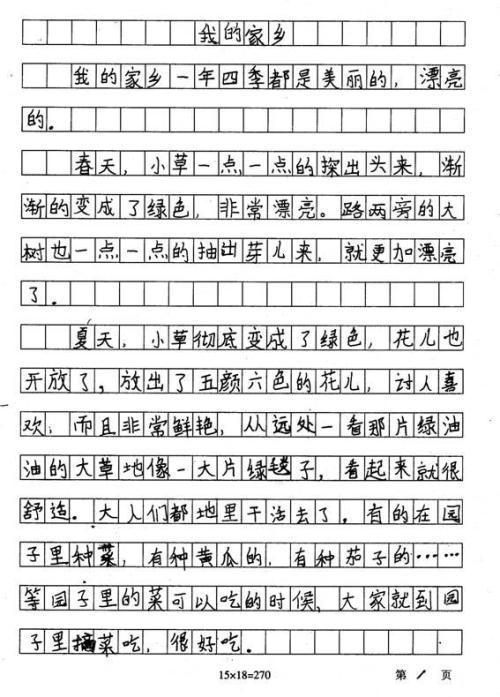 我的家乡
我的家乡一年四季都是美丽的，漂亮
的。
春天，小草一点一点的探出头来，渐
渐的变成了绿色，非常漂亮。路两旁的大
树也一点一点的抽出芽儿来，就更加漂亮
了。
夏天，小草彻底变成了绿色，花儿也
开放了，放出了五颜六色的花儿，讨人喜
欢，而且非常鲜艳，从远处一看那片绿油
油的大草地像一大片绿毯子，看起来就很
舒适。大人们都地里干活去了，有的在园
子里种菜，有种黄瓜的，有种茄子的……
等园子里的菜可以吃的时候，大家就到园
子里摘菜吃，很好吃。
15×18=270 第 1 页